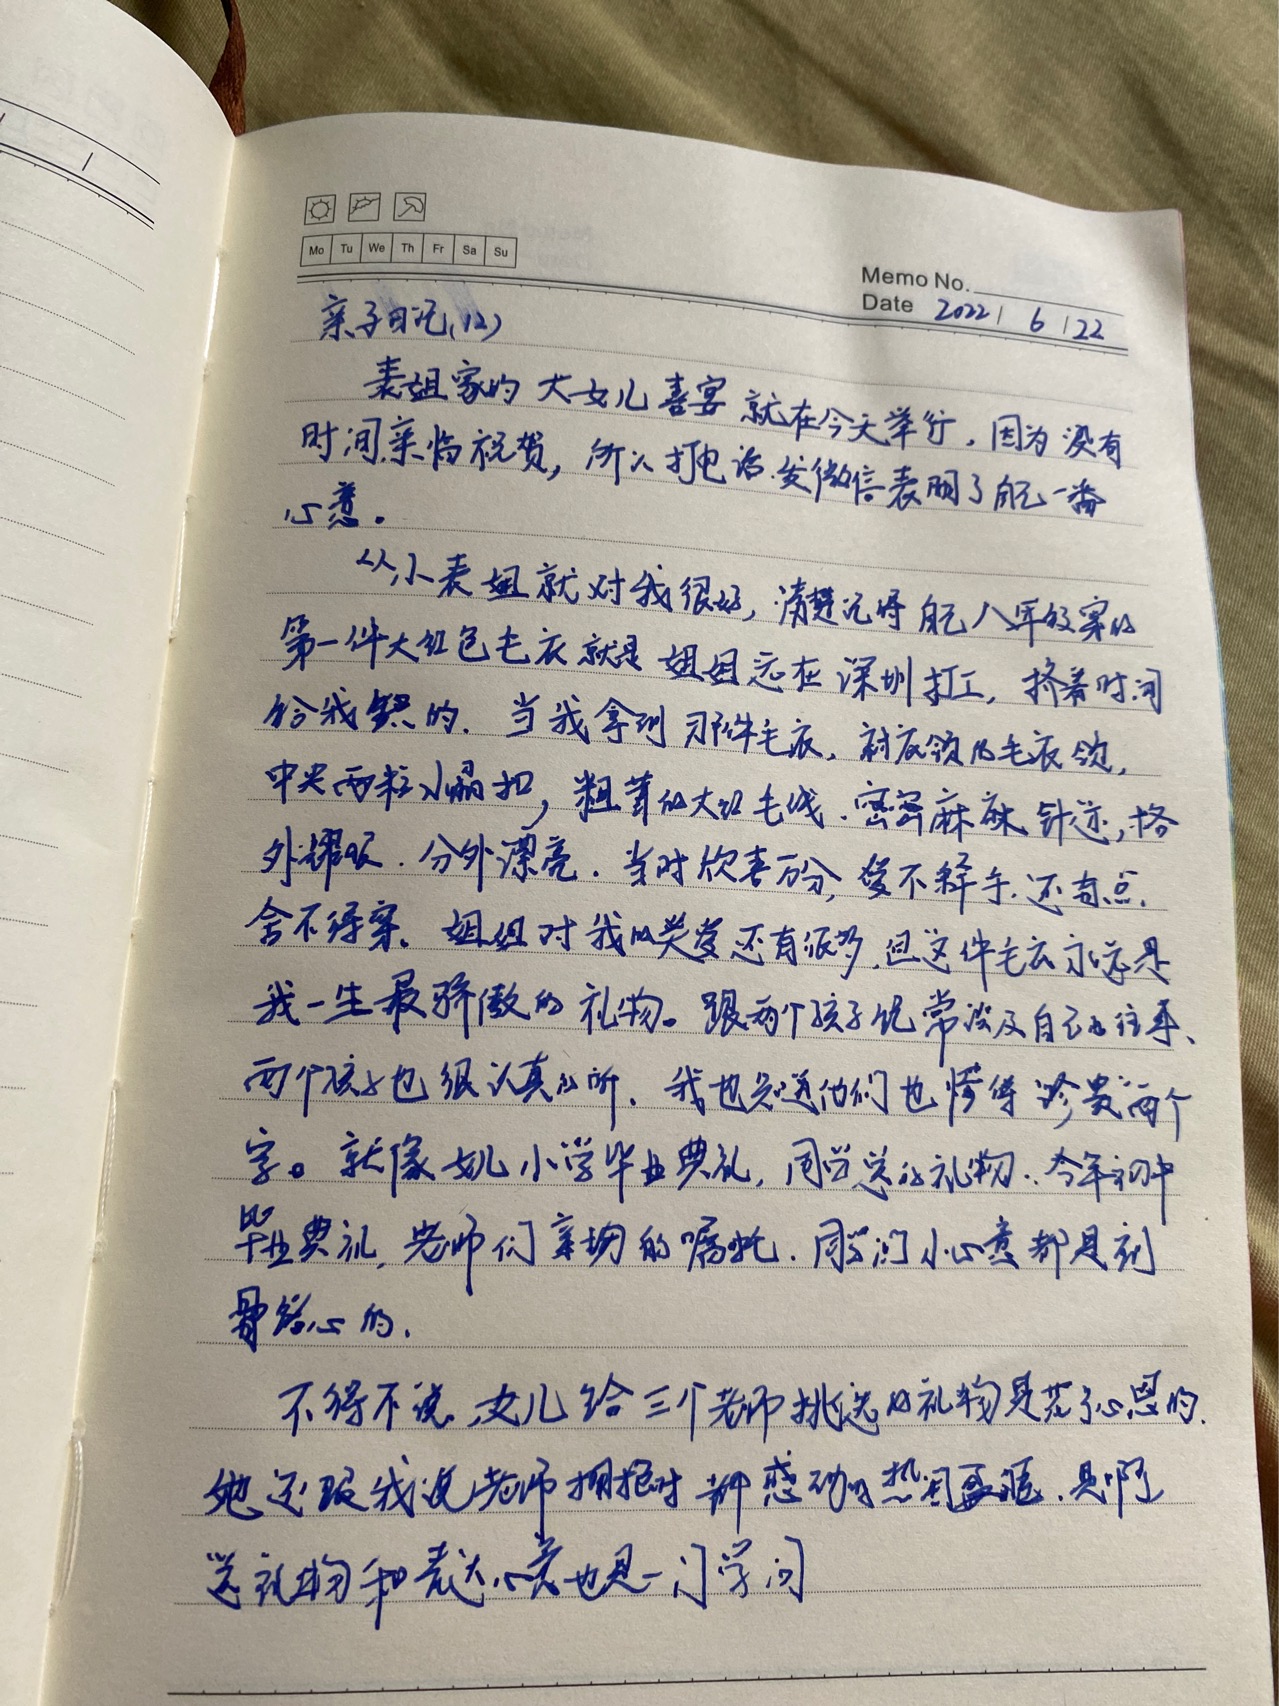 Mo Tu We Th Fr Sa Su
Memo No.
Date 2022 / 6 / 22
亲子日记(12)
表姐家的大女儿喜宴就在今天举行,因为没有
时间亲临祝贺,所以打电话.发微信表明了自己一番
心意。
从小表姐就对我很好,清楚记得自己八年级穿的
第一件大红色毛衣就是姐姐远在深圳打工,挤着时间
给我织的.当我拿到那件毛衣,衬底领的毛衣领,
中央两粒小晶扣,粗茸的大红毛线.密密麻麻针迹,格
外耀眼.分外漂亮.当时欣喜万分,爱不释手.还有点
舍不得穿.姐姐对我的关爱还有很多,但这件毛衣永远是
我一生最骄傲的礼物。跟两个孩子经常谈及自己的往事、
两个孩子也很认真的听.我也知道他们也懂得珍贵两个
字。就像女儿小学毕业典礼,同学送的礼物..今年初中
毕业典礼,老师们亲切的嘱托.同学们小心意都是刻
骨铭心的.
不得不说,女儿给三个老师挑选的礼物是花了心思的.
她还跟我说老师拥抱时那种感动的热泪盈眶.是啊
送礼物和表达心意也是一门学问